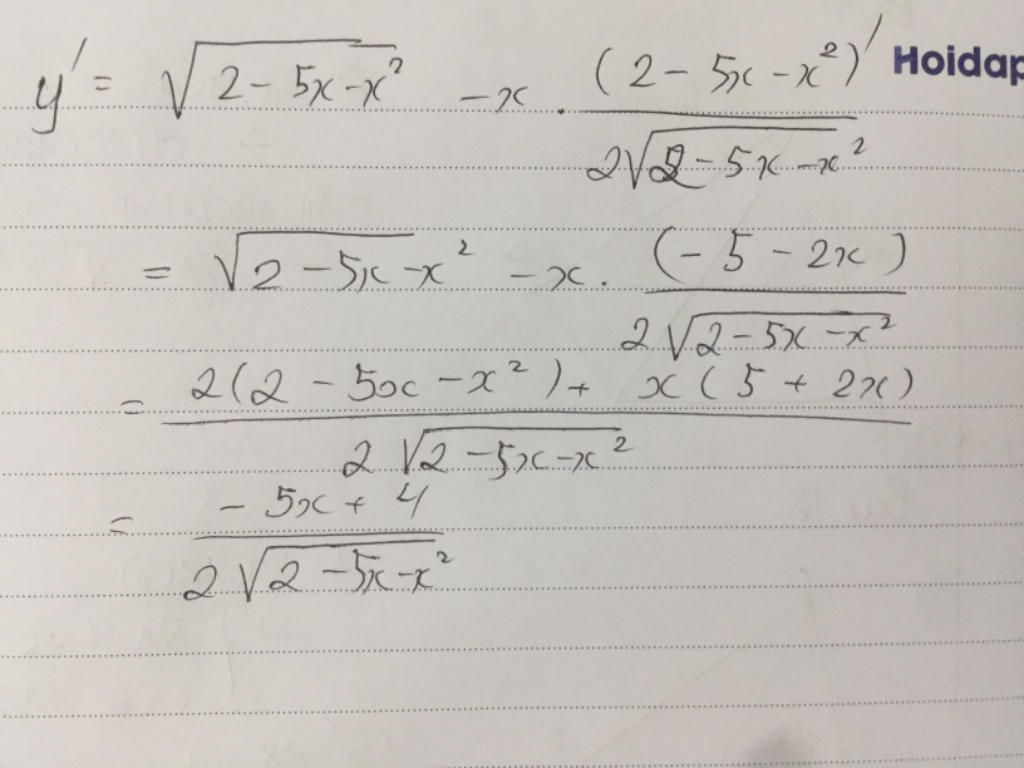 y' = √(2 - 5x - x²) - x . (2 - 5x - x²)' / 2√(2 - 5x - x²)
Hoidap
= √(2 - 5x - x²) - x . (-5 - 2x) / 2√(2 - 5x - x²)
= 2(2 - 5x - x²) + x(5 + 2x) / 2√(2 - 5x - x²)
= -5x + 4 / 2√(2 - 5x - x²)